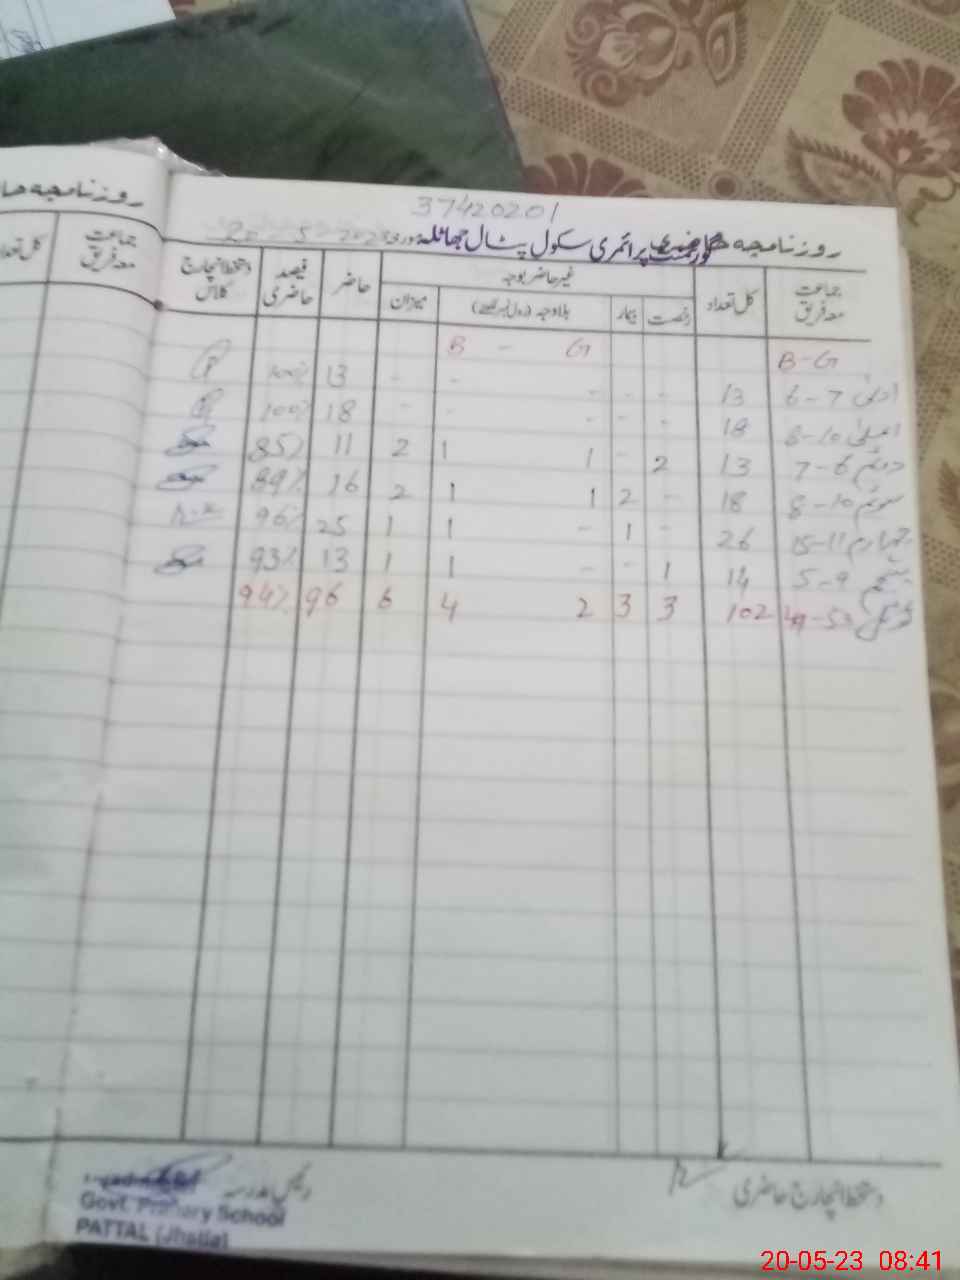 روزنامچہ حا
جماعت معہ فریق
کل تعداد
37420201
روزنامچہ حاضری گورنمنٹ پرائمری سکول پٹال جھاٹلہ مورخہ 20-5-2023
جماعت معہ فریق کل تعداد غیر حاضر بوجہ حاضر فیصد حاضری دستخط انچارج کلاس
رخصت بیمار بلاوجہ (رول نمبر لکھیے) میزان
B-G B - G
ادنیٰ 6-7 13 - - - - - 13 100%
اعلیٰ 8-10 18 - - - - - 18 100%
دوئم 7-6 13 2 - 1 1 2 11 85%
سوئم 8-10 18 - 2 1 1 2 16 89%
چہارم 15-11 26 - 1 - 1 1 25 96%
پنجم 5-9 14 1 - - 1 1 13 93%
ٹوٹل 49-53 102 3 3 2 4 6 96 94%
دستخط انچارج حاضری
رئیس مدرسہ
Govt. Primary School
PATTAL (Jhatla)
20-05-23 08:41